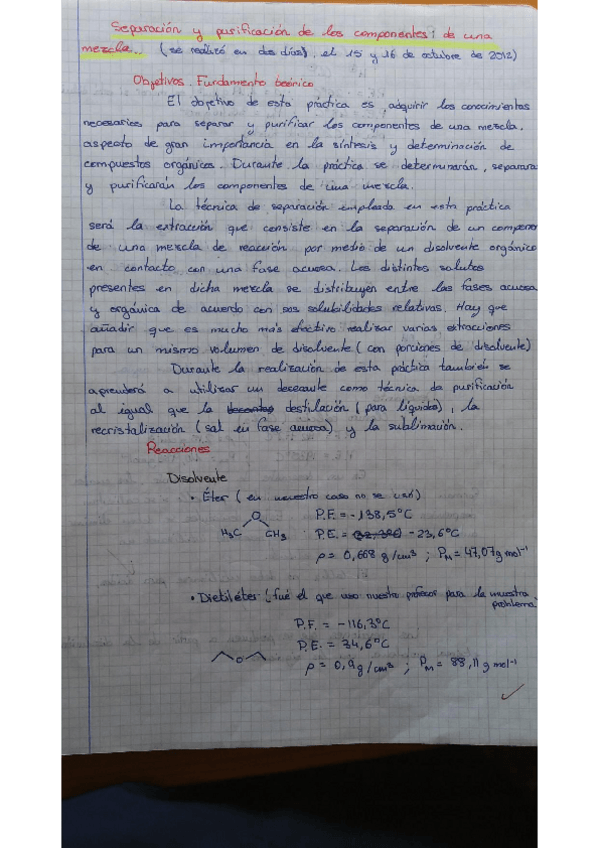 Separación y purificación de los componentes de una
mezcla. (se realizó en dos días, el 15 y 16 de octubre de 2012)
Objetivos. Fundamento teórico
El objetivo de esta práctica es adquirir los conocimientos
necesarios para separar y purificar los componentes de una mezcla,
aspecto de gran importancia en la síntesis y determinación de
compuestos orgánicos. Durante la práctica se determinarán, separará
y purificarán los componentes de una mezcla.
La técnica de separación empleada en esta práctica
será la extracción que consiste en la separación de un compone
de una mezcla de reacción por medio de un disolvente orgánico
en contacto con una fase acuosa. Los distintos solutos
presentes en dicha mezcla se distribuyen entre las fases acuosa
y orgánica de acuerdo con sus solubilidades relativas. Hay que
añadir que es mucho más efectivo realizar varias extracciones
para un mismo volumen de disolvente (con porciones de disolvente)
Durante la realización de esta práctica también se
aprenderá a utilizar un decante como técnica de purificación
al igual que la destilación (para líquidos), la
recristalización (sal en fase acuosa) y la sublimación.
Reacciones
Disolvente
• Éter (en nuestro caso no se usó)
O
H₃C CH₃
P.F. = -138,5°C
P.E. = -23,6°C
ρ = 0,668 g/cm³ ; PM = 47,07 g mol⁻¹
• Dietiléter (fué el que uso nuestro profesor para la muestra
problema)
P.F. = -116,3°C
P.E. = 34,6°C
O
ρ = 0,9 g/cm³ ; PM = 88,11 g mol⁻¹